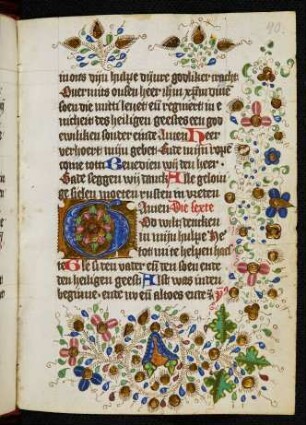 in ons dijn hulpe dijnre godliker macht
Ouermits onsen heer ihm xpm dinē
soen die mitti leuet eñ regniert in e
nicheit des heiligen geestes een god
ewliken sonder ende Amen Heer
verhoert mijn gebet Ende mijn ropē
come tot di Benedien wij den heer
Gode seggen wij danck Alle gelouī
ge sielen moeten rusten in vreten
Amen Die sexte
God wilt dencken
in mijn hulpe He
re tot mi te helpen haest
te Glorie si den vader eñ den soen ende
den heiligen geest Alst was inden
beginne ende nv eñ altoes ende